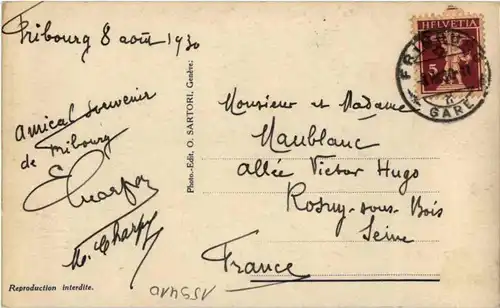 Fribourg 8 août 1930
Amical souvenir
de Fribourg
M. Charpy
Reproduction interdite.
Photo-Edit. O. SARTORI, Genève:
HELVETIA
5
FRIBOURG
GARE
Monsieur et Madame
Maublanc
Allée Victor Hugo
Rosny-sous-Bois
Seine
France